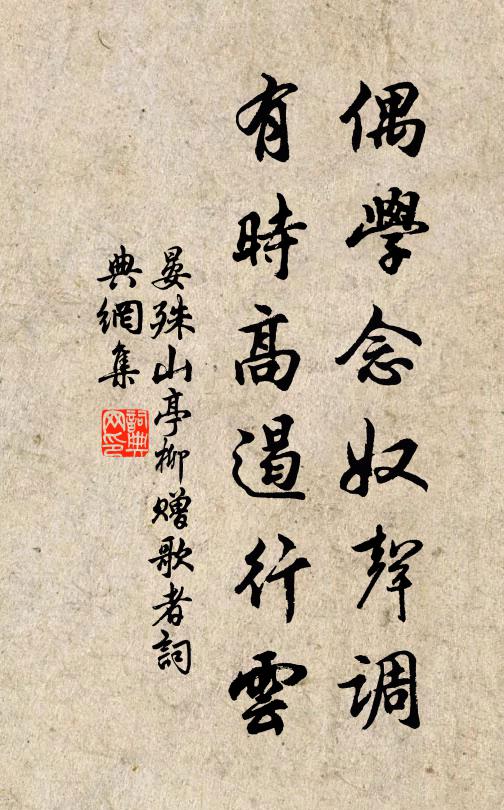 偶學念奴聲调
有時高遏行雲
晏殊山亭柳赠歌者詞
典網集
詞典
网印